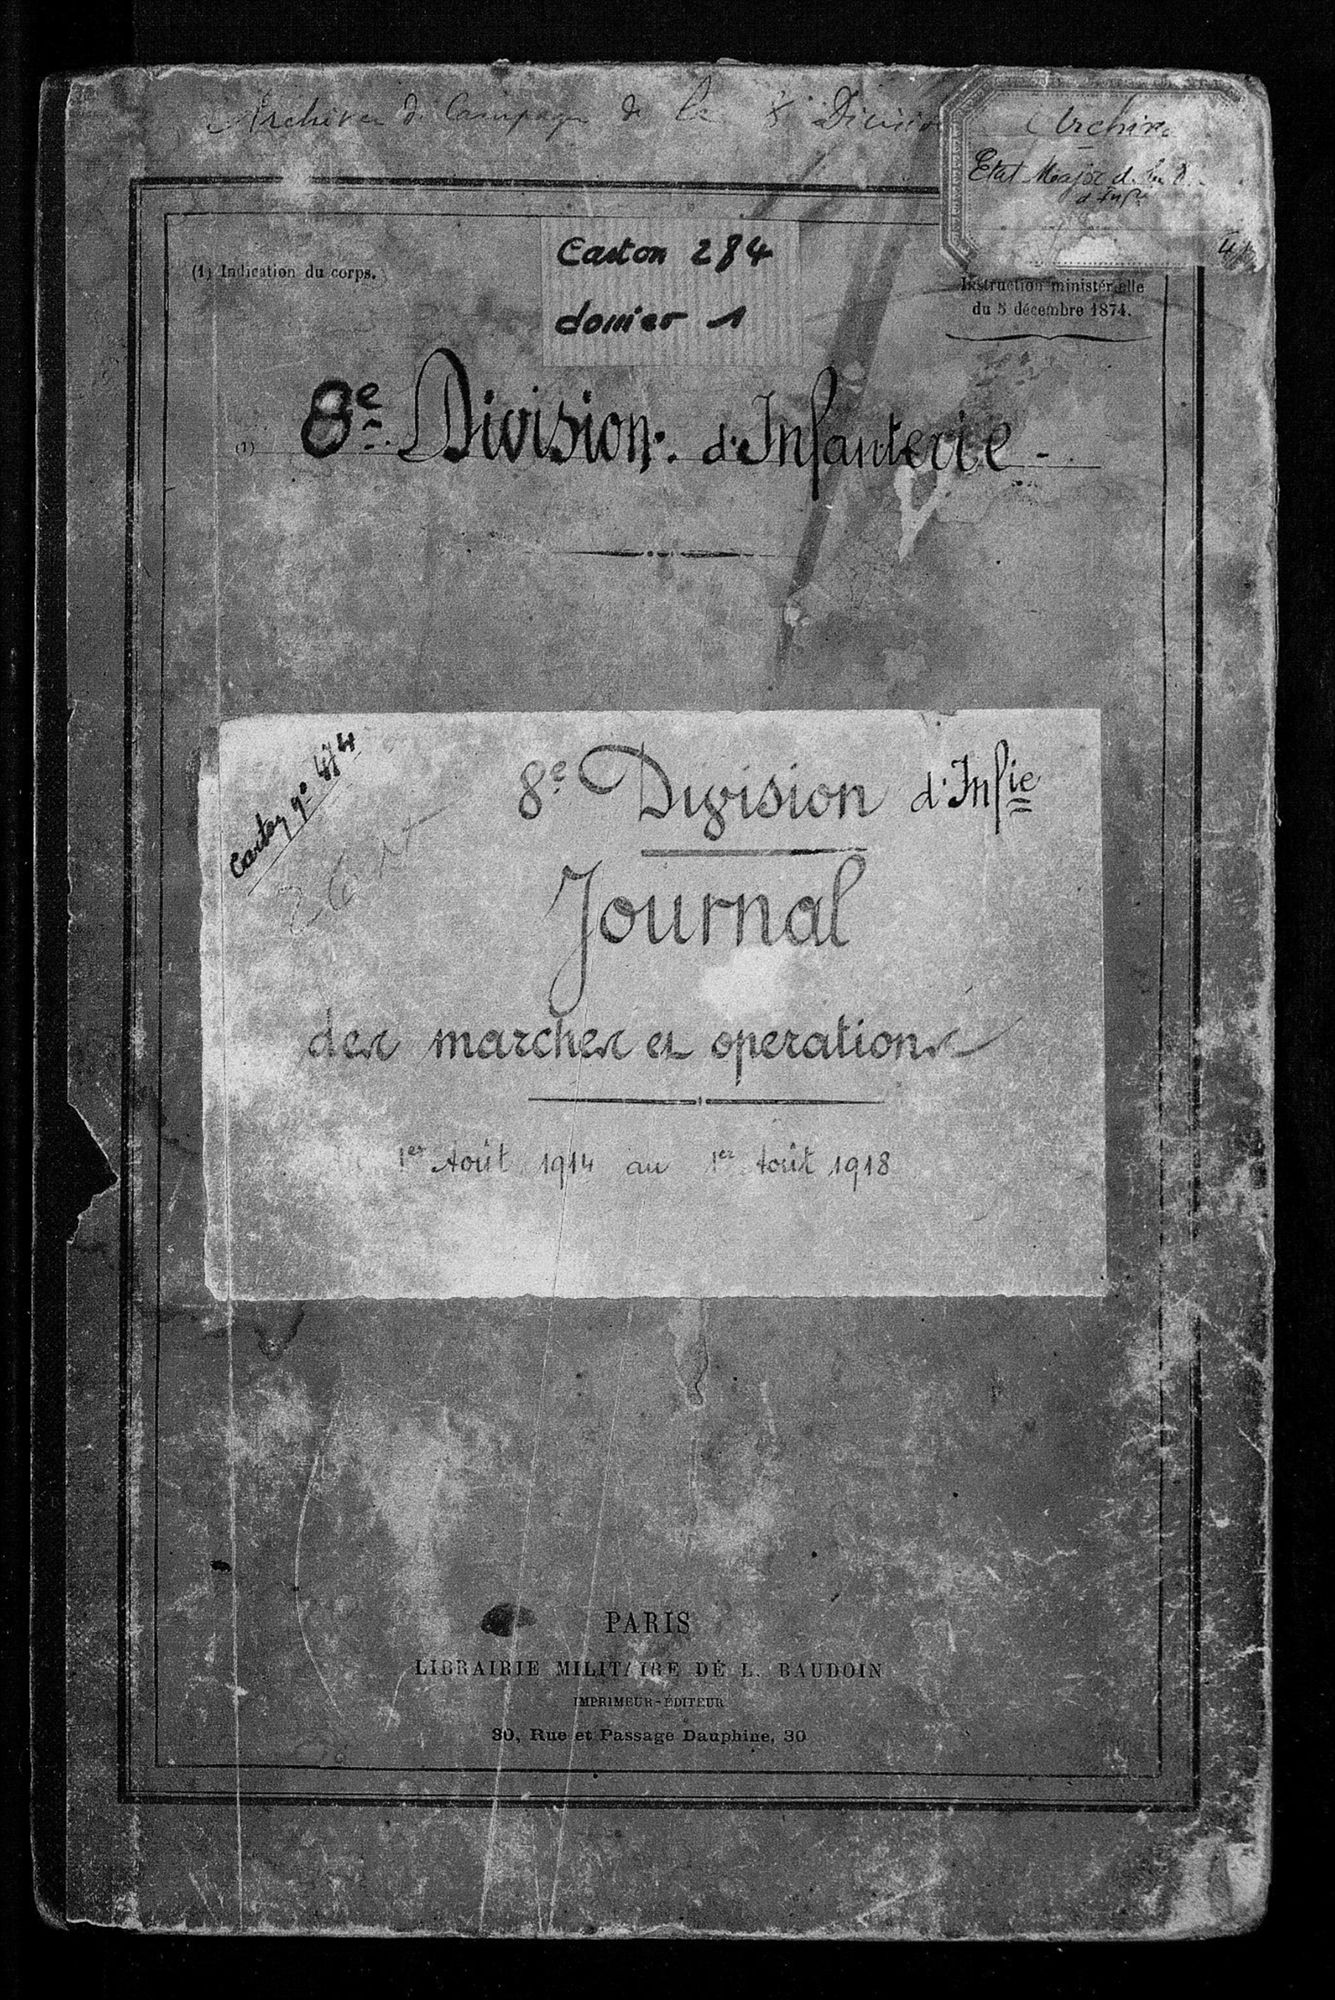 Archives de Campagne de la 8e Division
Archives
Etat Major de la
d'Infie
Carton 284
dossier 1
(1) Indication du corps.
Instruction ministérielle
du 5 décembre 1874.
(1) 8e Division d'Infanterie
Carton no 474
8e Division d'Infie
Journal
des marches et operations
1er Août 1914 au 1er Août 1918
PARIS
LIBRAIRIE MILITAIRE DE L. BAUDOIN
IMPRIMEUR-ÉDITEUR
30, Rue et Passage Dauphine, 30